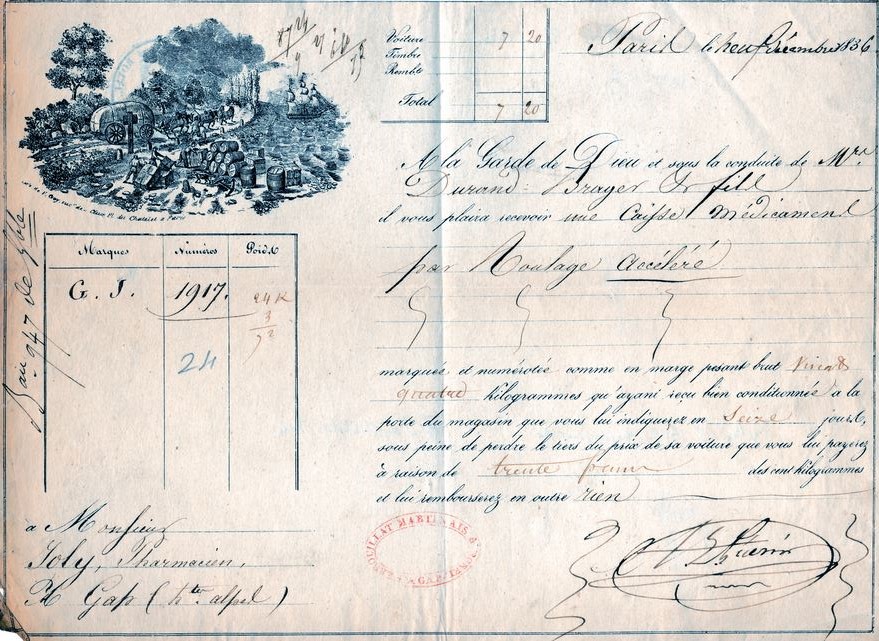 Voiture 7 20
Timbre
Rembt
Total 7 20
Paris le neuf Décembre 1836
A la Garde de Dieu et sous la conduite de Mre
Durand Brayer & fils
il vous plaira recevoir une Caisse Médicament
par Roulage accéléré
Marques Numéros Poids
G. J. 1917. 24 K
3
72
24
947
marquée et numérotée comme en marge pesant brut Vingt
quatre kilogrammes qu'ayant reçu bien conditionnée à la
porte du magasin que vous lui indiquerez en Seize jours,
sous peine de perdre le tiers du prix de sa voiture que vous lui payerez
à raison de trente francs des cent kilogrammes
et lui rembourserez en outre rien
a Monsieur
Joly, Pharmacien,
A Gap (htes alpes)
MARTINAIS &
Guérin